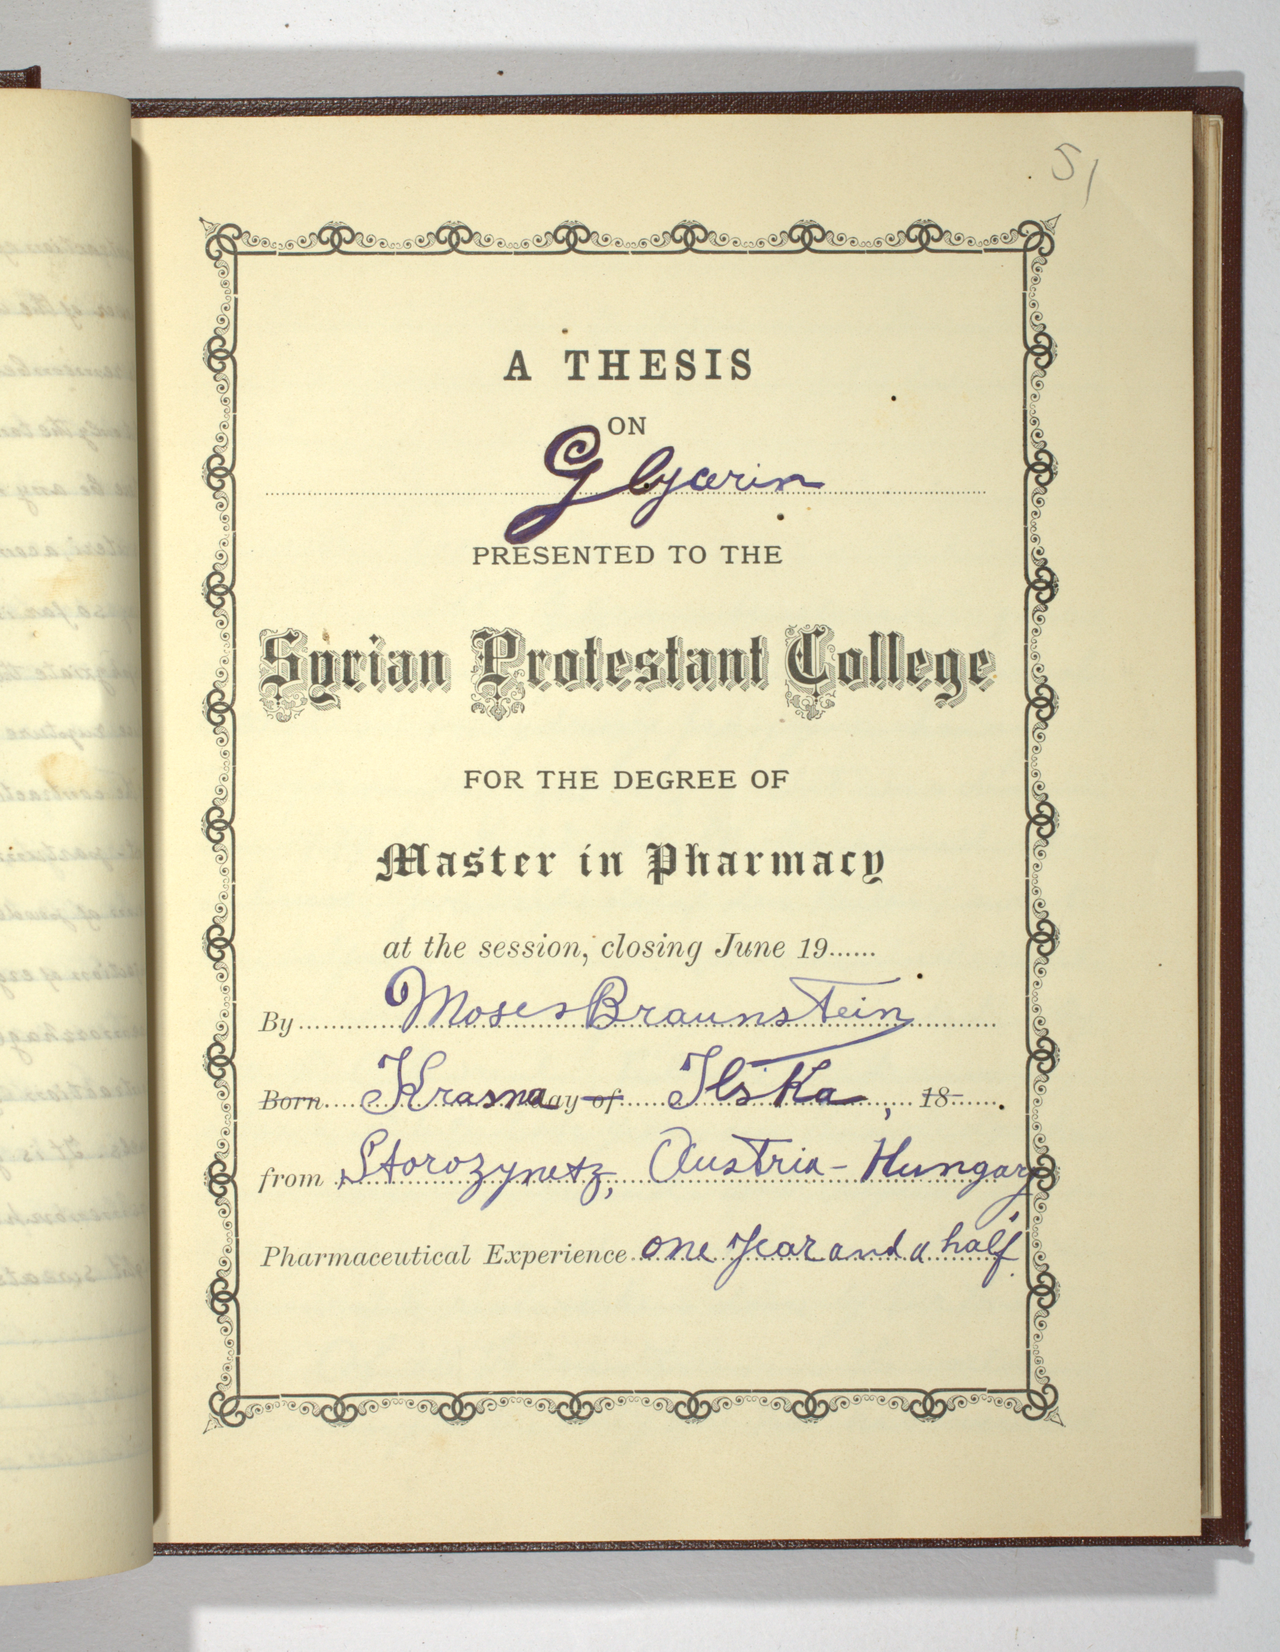 51
A THESIS
ON
Glycerin
PRESENTED TO THE
Syrian Protestant College
FOR THE DEGREE OF
Master in Pharmacy
at the session, closing June 19......
By Moses Braunstein
Born Krasna day of Ilska, 18
from Storozynetz, Austria-Hungary
Pharmaceutical Experience one year and a half.